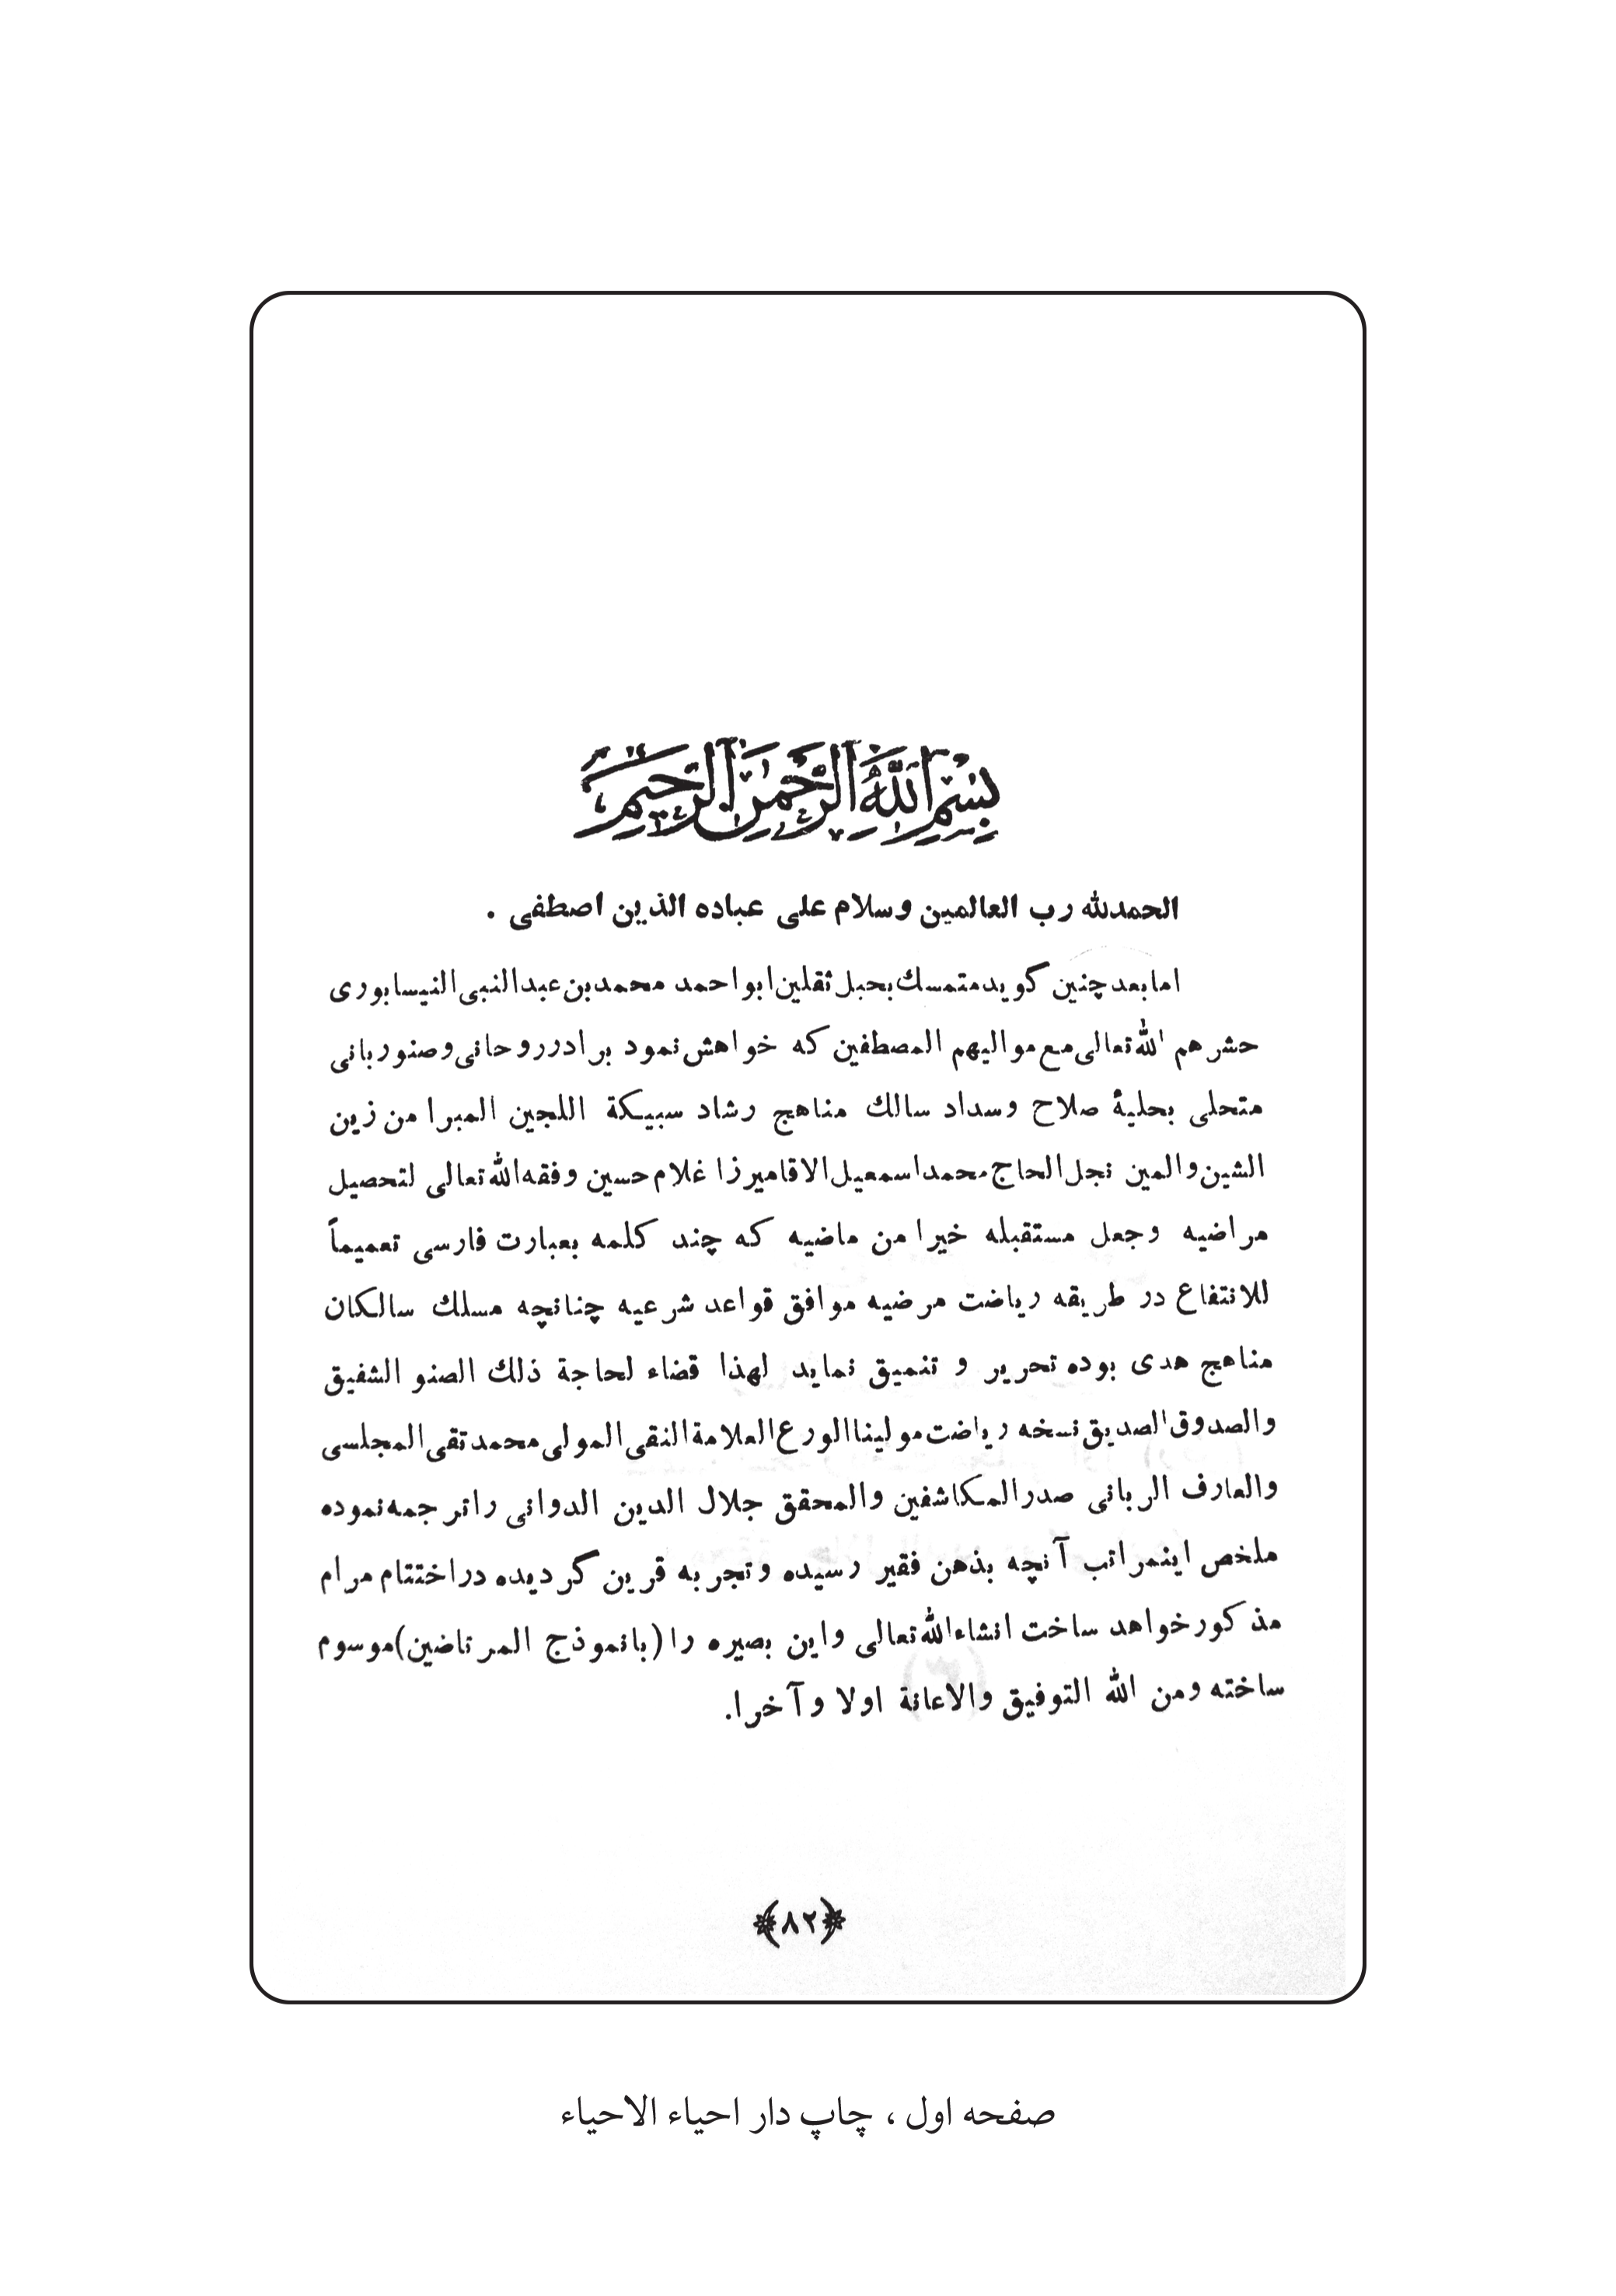 بِسْمِ اللَّهِ الرَّحْمٰنِ الرَّحِيمِ
الحمدلله رب العالمين وسلام على عباده الذين اصطفى .
اما بعد چنین گوید متمسك بحبل ثقلین ابو احمد محمد بن عبد النبی النیسابوری
حشرهم الله تعالی مع موالیهم المصطفین که خواهش نمود برادر روحانی و صنو ربانی
متحلی بحلیهٔ صلاح وسداد سالك مناهج رشاد سبیکة اللجین المبرا من زین
الشین والمین نجل الحاج محمد اسمعیل الاقا میرزا غلام حسین وفقه الله تعالی لتحصیل
مراضیه وجعل مستقبله خیرا من ماضیه که چند کلمه بعبارت فارسی تعمیماً
للانتفاع در طریقه ریاضت مرضیه موافق قواعد شرعیه چنانچه مسلك سالکان
مناهج هدی بوده تحریر و تنمیق نماید لهذا قضاء لحاجة ذلك الصنو الشفیق
والصدوق الصدیق نسخه ریاضت مولینا الورع العلامة النقی المولی محمد تقی المجلسی
والعارف الربانی صدر المکاشفین والمحقق جلال الدین الدوانی را ترجمه نموده
ملخص اینمراتب آنچه بذهن فقیر رسیده وتجربه قرین گردیده در اختتام مرام
مذکور خواهد ساخت انشاء الله تعالی واین بصیره را (بانموذج المرتاضین) موسوم
ساخته ومن الله التوفیق والاعانة اولا وآخرا.
﴿۸۲﴾
صفحه اول ، چاپ دار احیاء الاحیاء